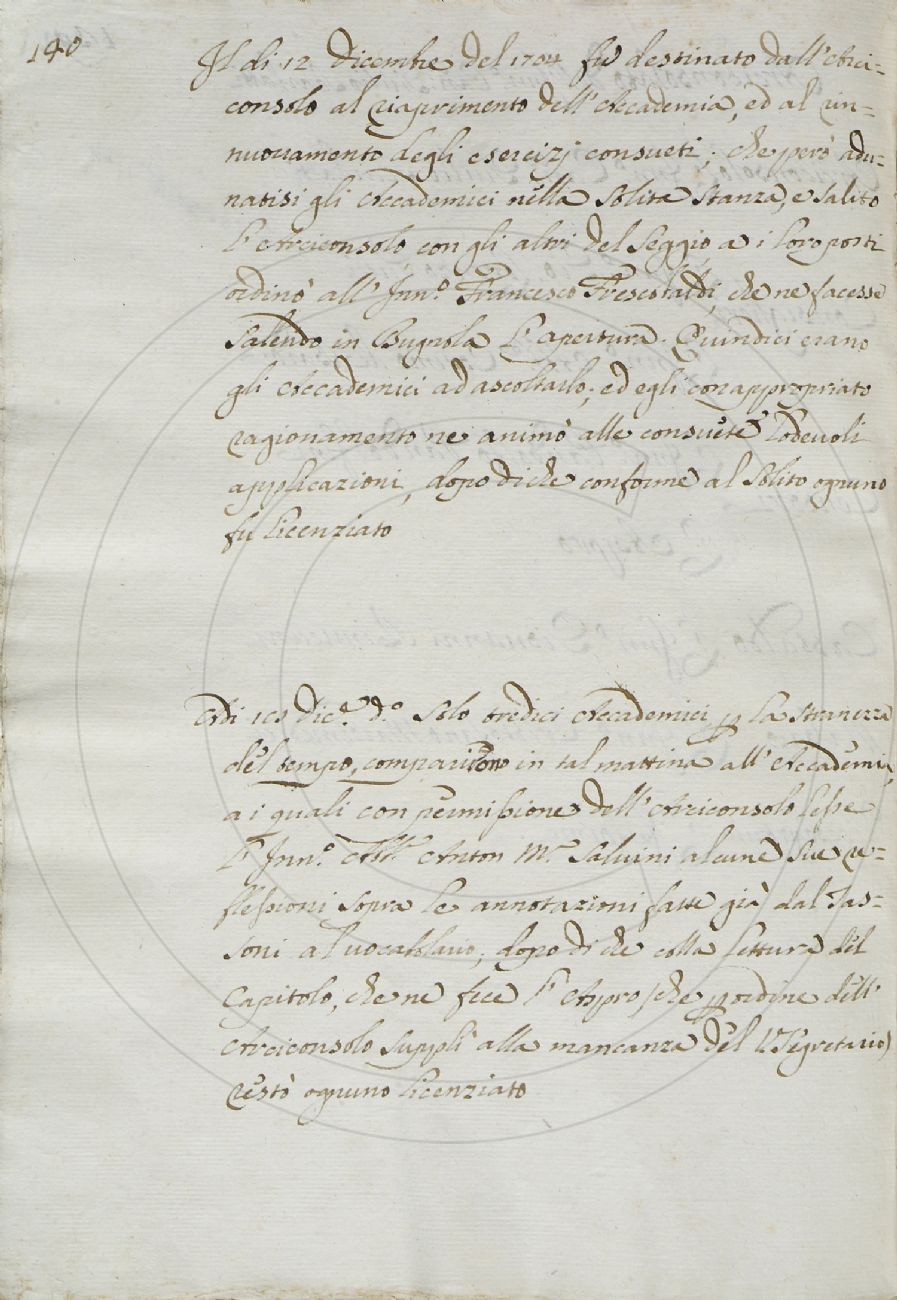 140
Il dì 12 Dicembre del 1704 fù destinato dall'Arci=
consolo al riaprimento dell'Accademia, ed al rin=
nuovamento degli esercizj consueti; che però adu=
natisi gli Accademici nella solita stanza, e salito
l'Arciconsolo con gli altri del Seggio a i loro posti
ordinò all'Inn.º Francesco Frescobaldi, che ne facesse
salendo in Bugnola l'apertura. Quindici erano
gli Accademici ad ascoltarlo; ed egli con appropriato
ragionamento ne animò alle consuete lodevoli
applicazioni, dopo di che conforme al solito ognuno
fù licenziato
Adi Dic.e d.o solo tredici Accademici p la stranezza
del tempo, compariron in tal mattina all'Accademia,
a i quali con permissione dell'Arciconsolo lesse
l'Inn.º Ab.e Anton M.a Salvini alcune sue re=
flessioni sopra le annotazioni fatte già dal Tas=
soni al vocabolario; dopo di che colla lettura del
Capitolo, che ne fece l'Aspro (che p ordine dell'
Arciconsolo supplì alla mancanza del Segretario)
restò ognuno licenziato